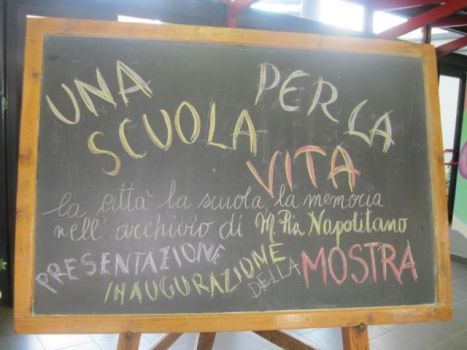 UNA PER LA
SCUOLA VITA
la città la scuola, la memoria
nell'archivio di M.Pia Napolitano
PRESENTAZIONE
INAUGURAZIONE
DELLA MOSTRA